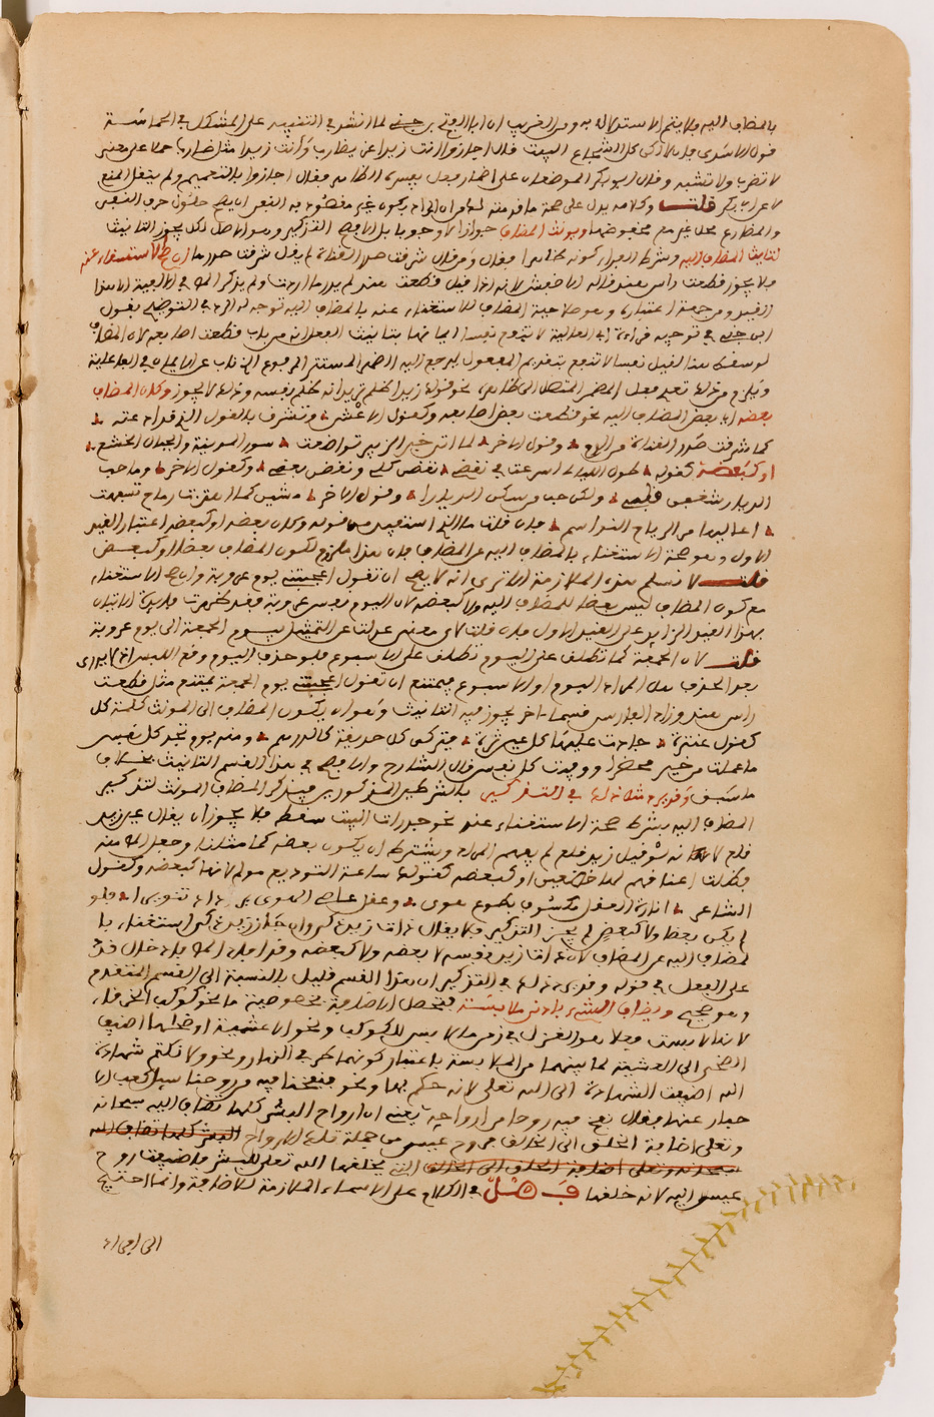 بالمضاف اليه فلا يتم الاستدلال به ومن الغريب ان ابا الفتح بن جني لما انشد في التنبيه على المشكل في الحماسة
قول الاخر فان لا اكن كل الشجاع البيت قال اجازوا انت زيدا غير ضارب وانت زيدا مثل ضارب حملا على معنى
لا تضرب ولا تشبه وقال ابو بكر الموضعان على اضمار فعل يفسره الظاهر فقال اجازوا بالتعميم ولم ينقل المنع
الا عن ابي بكر قلت وكلامه يدل على صحة ما قدمته
والمضارع ويؤنث المضاف جوازا لا وجوبا بل الافصح التذكير وهو الاصل لكن يجوز التانيث
لتانيث المضاف اليه وشرط الفراء كونه فقال ومن قال شرقت صدر القناة لم يقل شرقت صدرها ان صح الاستغناء عنه
فلا يجوز قطعت راس هند قاله الاخفش لانه اذا قيل قطعت هند لم يدر ما اردت ولم يذكر في الالفية الا هذا
القيد ومرجعه اعتبارا وهو صلاحية المضاف للاستغناء عنه بالمضاف اليه في التوضيح بقول
ابن جني في توجيه قراءة ابي العالية لا تنفع نفسا ايمانها بتانيث الفعل انه من باب قطعت بعض اصابعه لان المضاف
لو سقط هنا لقيل نفسا لا تنفع بتقديم المفعول ليرجع اليه الضمير المستتر المرفوع الذي ناب عن الايمان في الفاعلية
ويلزم من ذلك تعدي فعل المضمر المتصل الى ظاهره نحو قولك زيدا ظلم تريد انه ظلم نفسه وذلك لا يجوز وكان المضاف
بعضه اي بعض المضاف اليه نحو قطعت بعض اصابعه وكقول الاعشى وتشرق بالقول الذي قد اذعته
كما شرقت صدر القناة من الدم وقول الاخر لما اتى خبر الزبير تواضعت سور المدينة والجبال الخشع
او كبعضه كقوله طول الليالي اسرعت في نقضي نقضن كلي ونقضن بعضي وكقول الاخر وما حب
الديار شغفن قلبي ولكن حب من سكن الديارا وقول الاخر مشين كما اهتزت رماح تسفهت
اعاليها مر الرياح النواسم فان قلت ما الذي استفيد من قوله وكان بعضه او كبعضه اعتبار القيد
الاول وهو صحة الاستغناء بالمضاف اليه عن المضاف فان هذا ملزوم لكون المضاف بعضا او كبعض
قلت لا نسلم هذه الملازمة الا ترى انه لا يصح ان تقول اعجبتني يوم عروبة وان صح الاستغناء
مع كون المضاف ليس بعضا للمضاف اليه ولا كبعضه لان اليوم نفس عروبة فقد ظهرت فايدة الاتيان
بهذا القيد الزايد على القيد الاول فان قلت لاي معنى عدلت عن التمثيل بيوم الجمعة الى يوم عروبة
قلت لان الجمعة كما تطلق على اليوم تطلق على الاسبوع فلو حذف اليوم وقع اللبس اذ لا يدرى
بعد الحذف هل المراد اليوم او الاسبوع فيمتنع ان تقول اعجبتني يوم الجمعة يمتنع مثل قطعت
راس هند وزاد الفارسي قسما اخر يجوز فيه التانيث وهو ان يكون المضاف الى المونث كلمة كل
كقول عنترة جادت عليها كل عين ثرة فتركن كل حديقة كالدرهم ومنه يوم تجد كل نفس
ما عملت من خير محضرا ووفيت كل نفس قال الشارح والافصح في هذا القسم التانيث بخلاف
ما سبق وقد يرد مثل ذلك في التذكير بالشرطين المذكورين فيذكر المضاف المونث لتذكير
المضاف اليه بشرط صحة الاستغناء عنه نحو جدرات البيت سقط فلا يجوز ان يقال عين زيد
قلع لانه لو قيل زيد قلع لم يفهم المراد ويشترط ان يكون بعضه كما مثلنا وجعل المص منه
فظلت اعناقهم لها خاضعين او كبعضه كقولك ساعة التوديع مولم لانها كبعضه وكقول
الشاعر انارة العقل مكسوف بطوع هوى وعقل عاصي الهوى يزداد تنويرا فلو
لم يكن بعضا ولا كبعض لم يجز التذكير فلا يقال ذات زيد ذكي وان جاز زيد ذكي استغناء با
لمضاف اليه عن المضاف لان ذات زيد نفسه لا بعضه ولا كبعضه وقد افاد المص بادخال قد
على الفعل في قوله وقد يرد ذلك في التذكير ان هذا القسم قليل بالنسبة الى القسم المتقدم
وهو صحيح ويضاف الشيء بادنى ملابسة فتحصل الاضافة بخصوصية ما نحو كوكب الخرقاء
لانها لابست فعلا هو الغزل في زمن ملابس للكوكب ونحو الا عشية او ضحاها اضيف
الضحى الى العشية لما بينهما من الملابسة باعتبار كونهما طرفي النهار ونحو ولا نكتم شهادة
الله اضيفت الشهادة الى الله تعالى لانه حكم بها ونحو فنفخنا فيه من روحنا سئل كعب الا
حبار عنها فقال نفخ فيه روحا من ارواحه يعني ان ارواح البشر كلها تضاف اليه سبحانه
وتعالى اضافة الخلق الى الخالق فروح عيسى من جملة تلك الارواح البشر كلها تضاف اليه
سبحانه وتعالى اضافة الخلق الى الخالق التي يخلقها الله تعالى للبشر فاضيفت روح
عيسى اليه لانه خلقها فصل في الكلام على الاسماء الملازمة للاضافة وانما احتيج
الى افراد